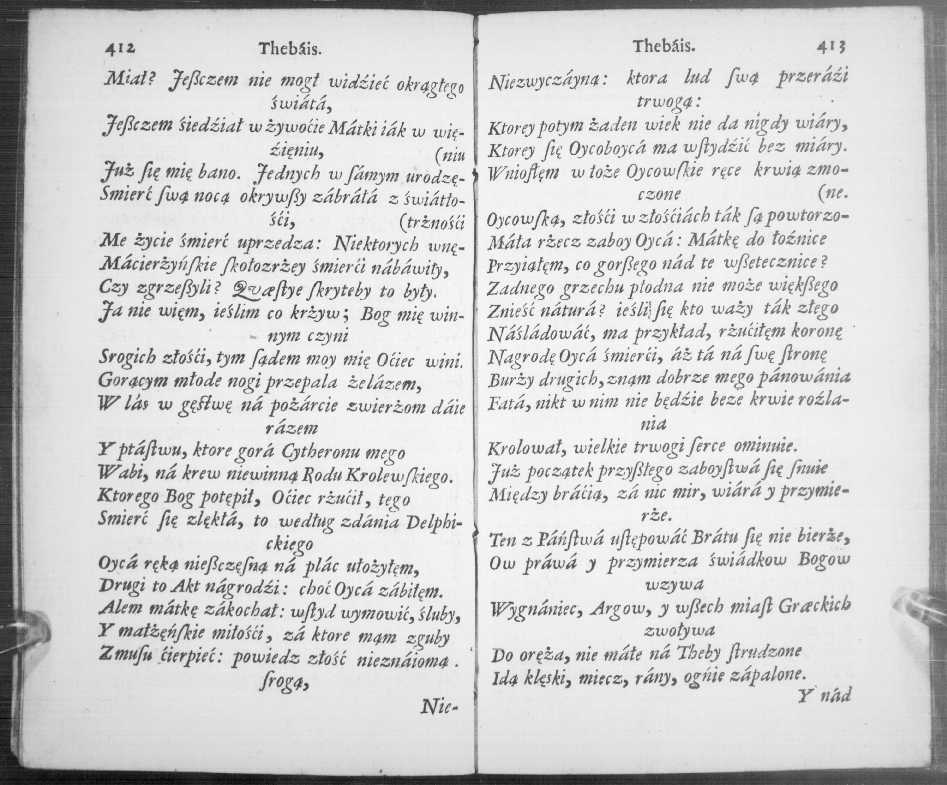 412 Thebáis.
Miał? Jeßczem nie mogł widźieć okrągłego
świátá,
Jeßczem śiedźiał w żywoćie Mátki iák w wię-
źięniu, (niu
Już ſię mię bano. Jednych w ſámym urodzę-
Smierć ſwą nocą okrywßy zábráłá z świátło-
śći, (trżnośći
Me życie śmierć uprzedza: Niektorych wnę-
Mácierżyńſkie ſkołozrżey śmierći nábáwiły,
Czy zgrzeßyli? Quæſtye ſkryteby to były.
Ja nie więm, ieślim co krżyw; Bog mię win-
nym czyni
Srogich złośći, tym ſądem moy mię Oćiec wini.
Gorącym młode nogi przepala żelázem,
W lás w gęſtwę ná pożárcie zwierżom dáie
rázem
Y ptáſtwu, ktore gorá Cytheronu mego
Wabi, ná krew niewinną Rodu Krolewſkiego.
Ktorego Bog potępił, Oćiec rżućił, tego
Smierć ſię zlękłá, to według zdánia Delphi-
ckiego
Oycá ręką nießczęſną ná plác ułożyłęm,
Drugi to Akt nágrodźi: choć Oycá zábiłęm.
Alem mátkę zákochał: wſtyd wymowić, śluby,
Y małżęńſkie miłośći, zá ktore mąm zguby
Zmuſu ćierpieć: powiedz złość nieznáiomą.
ſrogą,
Nie-
Thebáis. 413
Niezwyczáyną: ktora lud ſwą przeráźi
trwogą:
Ktorey potym żaden wiek nie da nigdy wiáry,
Ktorey ſię Oycoboycá ma wſtydźić bez miáry.
Wnioſłęm w łoże Oycowſkie ręce krwią zmo-
czone (ne.
Oycowſką, złośći w złośćiách ták ſą powtorzo-
Máła rżecz zaboy Oycá: Mátkę do łoźnice
Przyiąłęm, co gorßego nád te wßetecznice?
Zadnego grzechu płodna nie może więkßego
Znieść náturá? ieśli ſię kto waży ták złego
Náśládowáć, ma przykład, rżućiłęm koronę
Nagrodę Oycá śmierći, áż tá ná ſwę ſtronę
Burży drugich, znąm dobrze mego pánowánia
Fatá, nikt w nim nie będźie beze krwie roźla-
nia
Krolował, wielkie trwogi ſerce ominuie.
Już początek przyßłego zaboyſtwá ſię ſnuie
Między bráćią, zá nic mir, wiárá y przymie-
rże.
Ten z Páńſtwá uſtępowáć Brátu ſię nie bierże,
Ow práwá y przymierza świádkow Bogow
wzywa
Wygnániec, Argow, y wßech miaſt Græckich
zwoływa
Do oręża, nie máłe ná Theby ſtrudzone
Idą klęski, miecz, rány, ognie zápalone.
Y nád